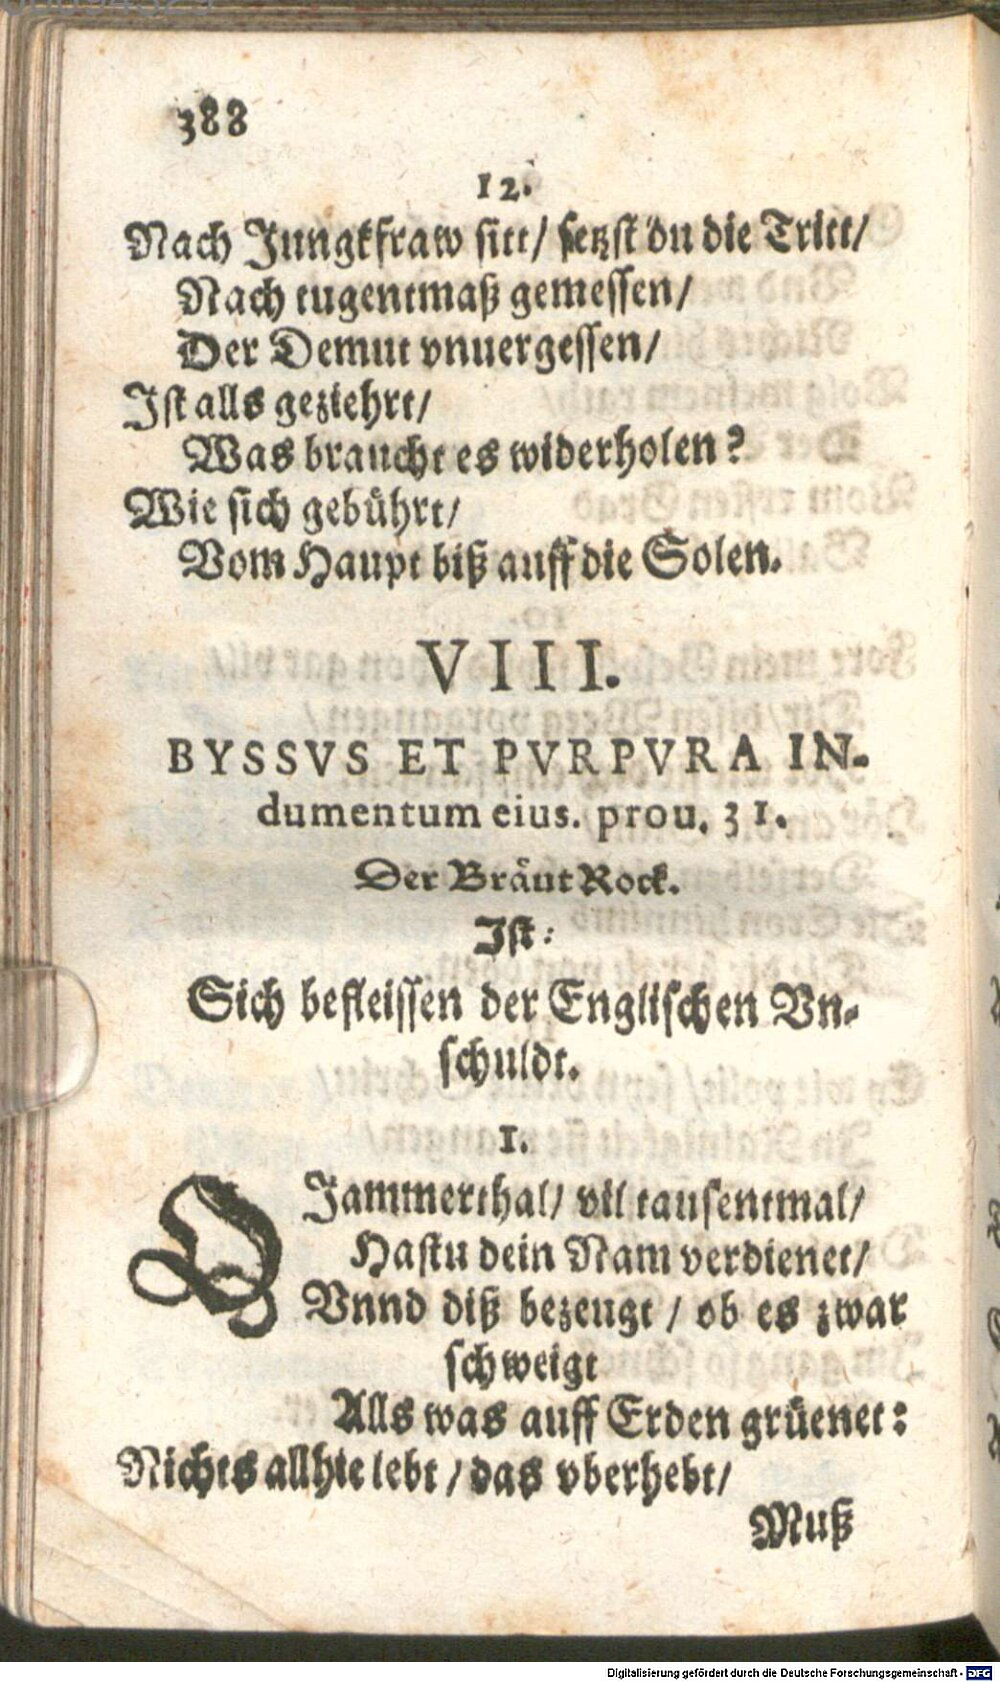 388
12.
Nach Jungkfraw sitt/ setzst du die Tritt/
Nach tugentmaß gemessen/
Der Demut vnuergessen/
Ist alls geziehrt/
Was braucht es widerholen?
Wie sich gebührt/
Vom Haupt biß auff die Solen.
VIII.
BYSSVS ET PVRPVRA IN-
dumentum eius. prou. 31.
Der Bräut Rock.
Ist:
Sich befleissen der Englischen Vn-
schuldt.
1.
O Jammerthal/ vil tausentmal/
Hastu dein Nam verdienet/
Vnnd diß bezeugt / ob es zwar
schweigt
Alls was auff Erden grüenet:
Nichts allhie lebt / das vberhebt/
Muß
Digitalisierung gefördert durch die Deutsche Forschungsgemeinschaft - DFG